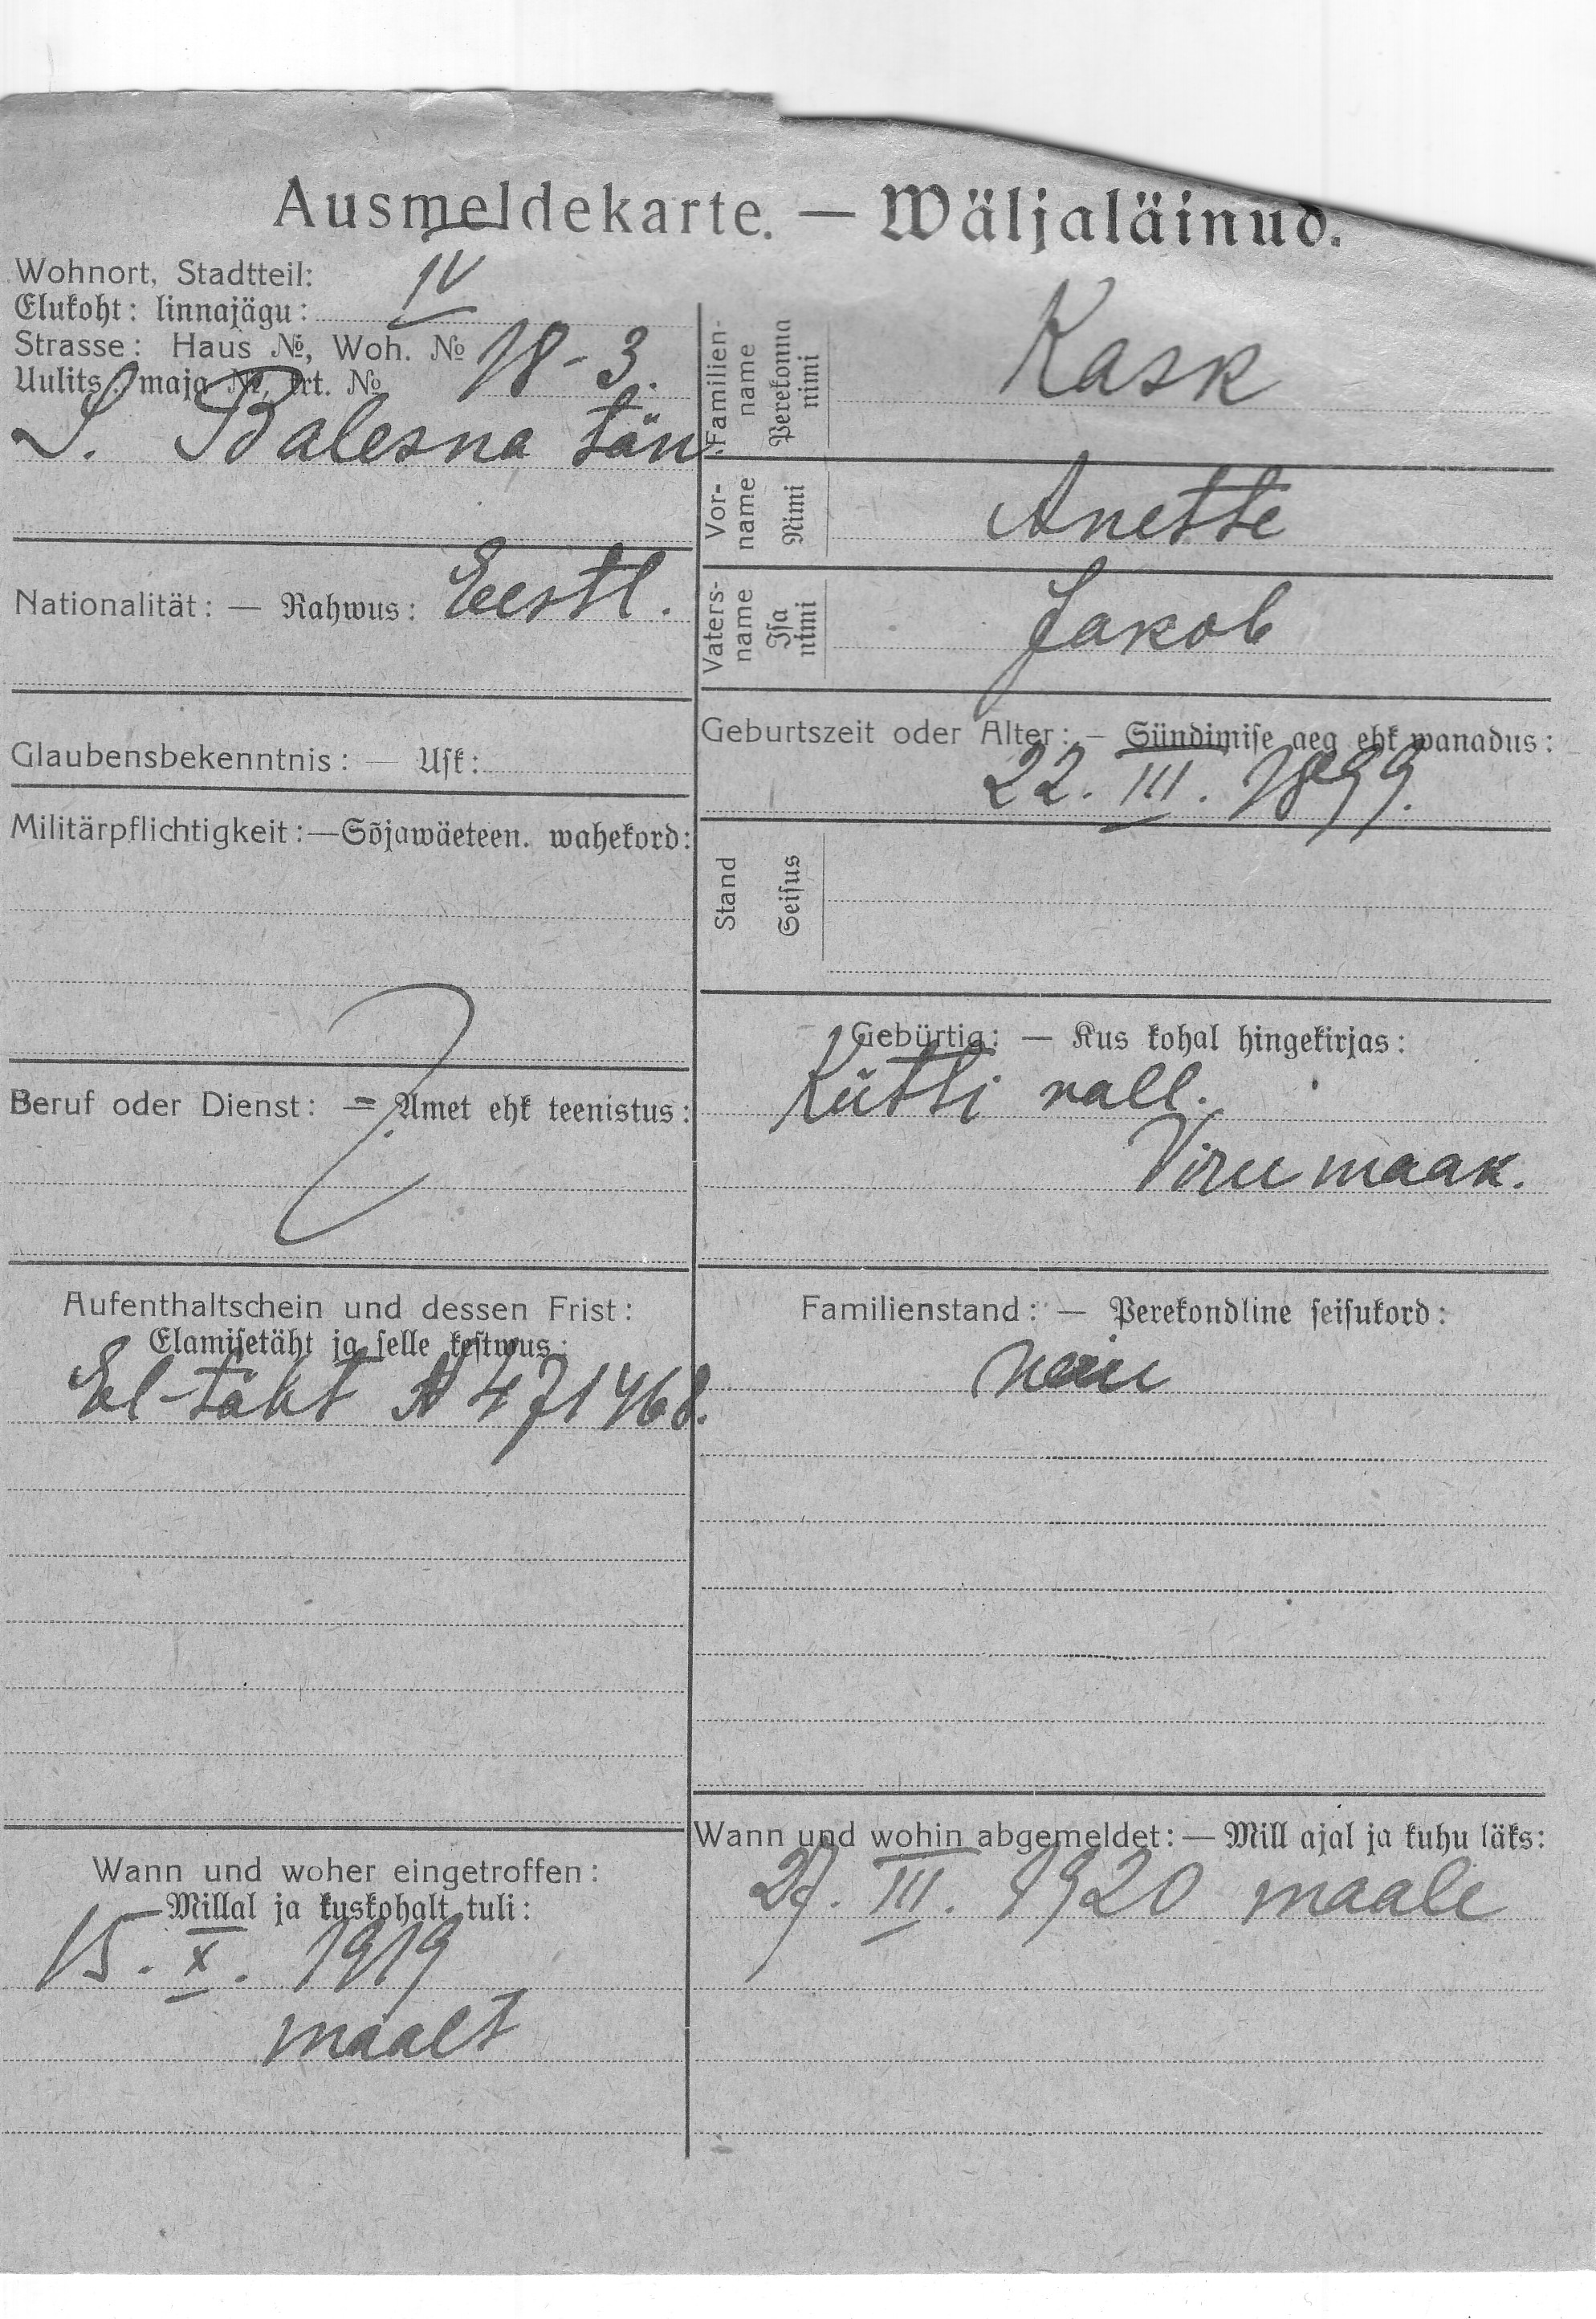 Ausmeldekarte. — Wäljaläinud.
Wohnort, Stadtteil:
Elukoht: linnajägu: IV
Strasse: Haus №, Woh. № 18-3.
Uulits, maja №, krt. №
S. Balesna tän.
Familien-name Perekonna nimi Kask
Vor-name Nimi Anette
Vaters-name Isa nimi Jakob
Nationalität: — Rahwus: Eestl.
Glaubensbekenntnis: — Usk:
Militärpflichtigkeit:—Sõjawäeteen. wahekord:
Beruf oder Dienst: — Amet ehk teenistus:
Geburtszeit oder Alter: — Sündimise aeg ehk wanadus:
22. III. 1899.
Stand Seisus
Gebürtig: — Kus kohal hingekirjas:
Kütti vall.
Virumaak.
Aufenthaltschein und dessen Frist:
Elamisetäht ja selle kestwus:
El-täht A 471468.
Familienstand: — Perekondline seisukord:
neiu
Wann und woher eingetroffen:
Millal ja kuskohalt tuli:
15. X. 1919
maalt
Wann und wohin abgemeldet: — Mill ajal ja kuhu läks:
27. III. 1920 maale